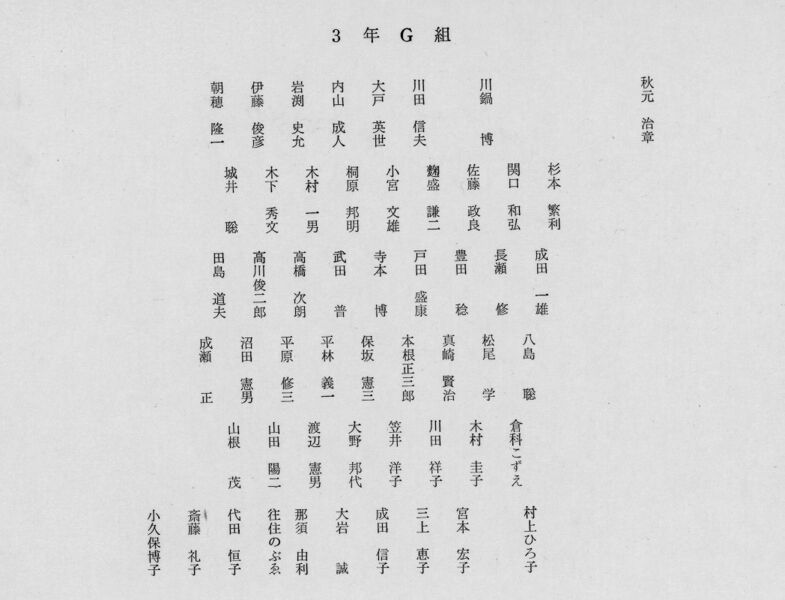 3年G組
秋元 治章
川鍋 博
川田 信夫
大戸 英世
内山 成人
岩渕 史允
伊藤 俊彦
朝穂 隆一
杉本 繁利
関口 和弘
佐藤 政良
麹盛 謙二
小宮 文雄
桐原 邦明
木村 一男
木下 秀文
城井 聡
成田 一雄
長瀬 修
豊田 稔
戸田 盛康
寺本 博
武田 普
高橋 次朗
高川俊二郎
田島 道夫
八島 聡
松尾 学
真崎 賢治
本根正三郎
保坂 憲三
平林 義一
平原 修三
沼田 憲男
成瀬 正
倉科こずえ
木村 圭子
川田 祥子
笠井 洋子
大野 邦代
渡辺 憲男
山田 陽二
山根 茂
村上ひろ子
宮本 宏子
三上 恵子
成田 信子
大岩 誠
那須 由利
往住のぶゑ
代田 恒子
斎藤 礼子
小久保博子